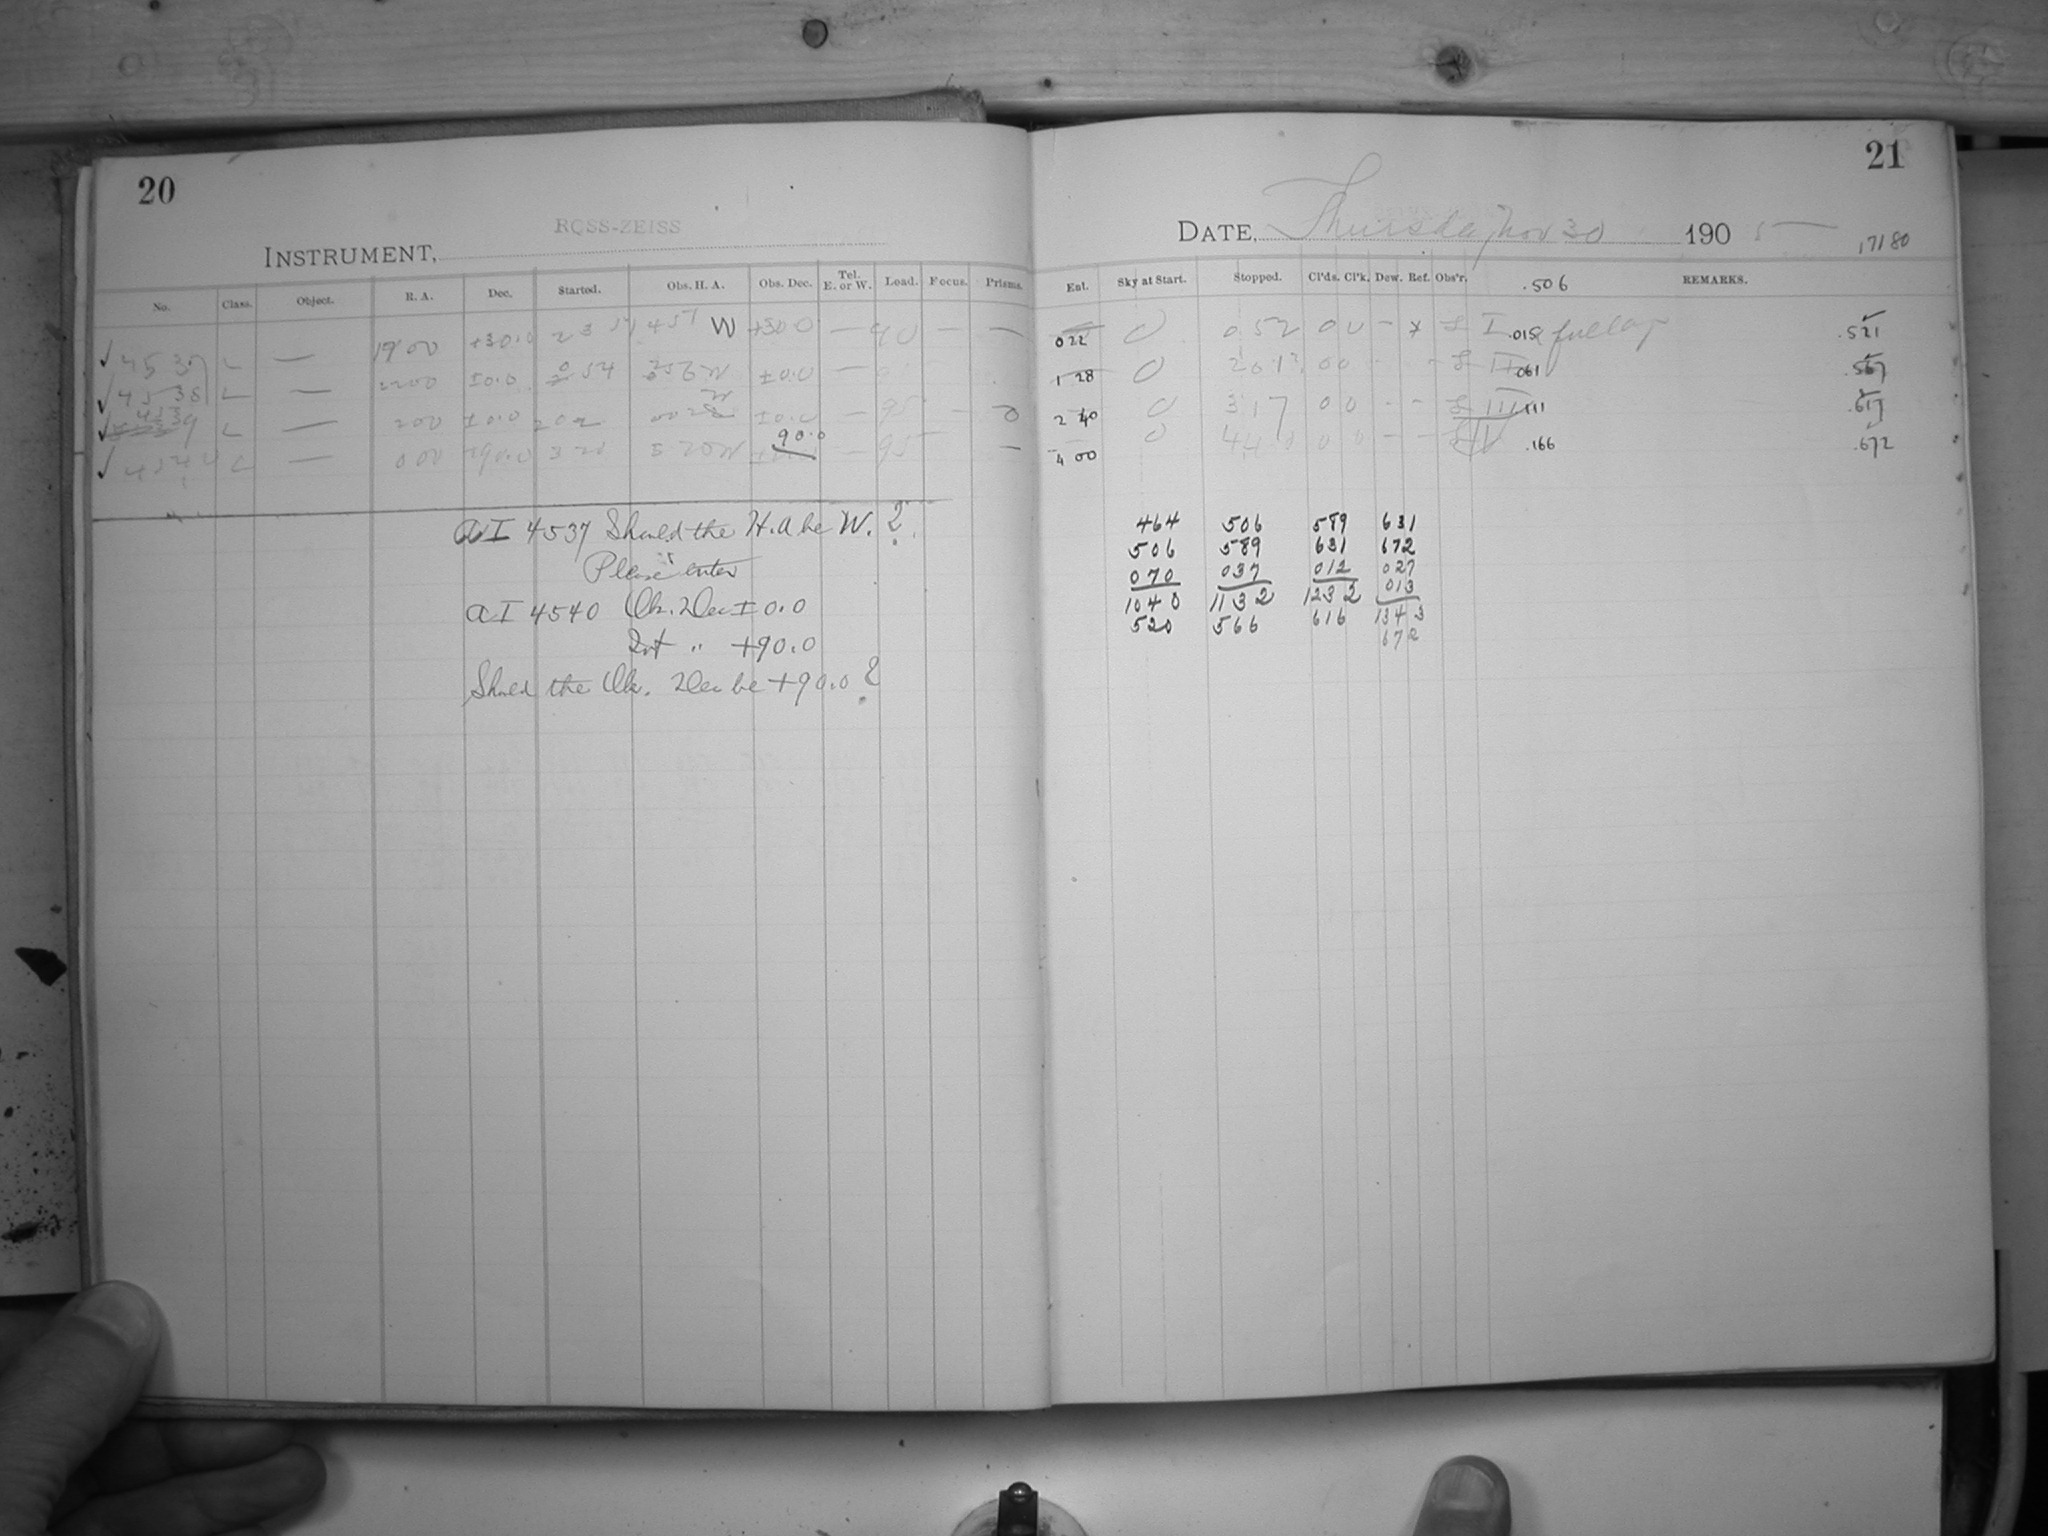 20
ROSS-ZEISS
INSTRUMENT,
No. Class. Object. R. A. Dec. Started. Obs. H. A. Obs. Dec. Tel. E. or W. Lead. Focus. Prisms.
4537 L — 1900 +30.0 23 57 4 57 W +30.0 — 90 — —
4538 L — 2200 ±0.0 0 54 ±0.0 —
4539 L — 200 ±0.0 202 ±0.0 — 95 — 0
L — 000 +90.0 3 20 90.0 — 95 —
AI 4537 Should the H.A be W. ?
Please enter
AI 4540 Ok. Dec ±0.0
" +90.0
Should the Ok. Dec be +90.0 ?
21
DATE, Thursday, Nov 30 1905
17180
Ent. Sky at Start. Stopped. Cl'ds. Cl'k. Dew. Ref. Obs'r. .506 REMARKS.
022 0 0 52 0 0 - x I .015 .521
1 28 0 0 0 - - II .061 .567
2 40 0 3 17 0 0 - - III .111 .617
4 00 0 0 0 - - IV .166 .672
464 506 589 631
506 589 631 672
070 037 012 027
1040 1132 1232 013
520 566 616 1343
672